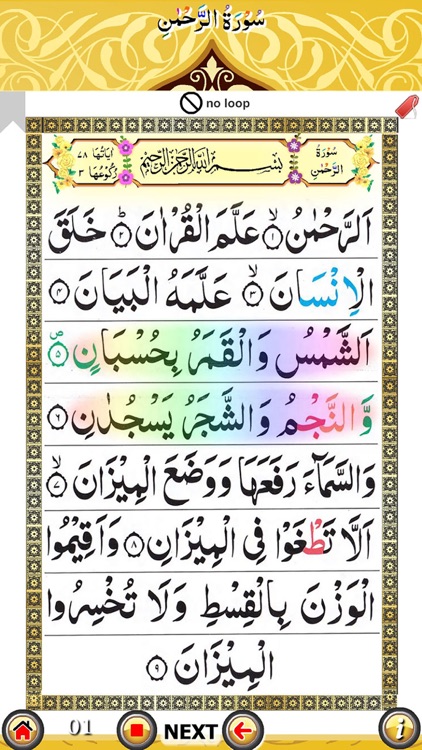 سُوْرَةُ الرَّحْمٰنِ
no loop
سُوْرَةُ الرَّحْمٰنِ
بِسْمِ اللّٰهِ الرَّحْمٰنِ الرَّحِيْمِ
اٰيَاتُهَا ٧٨
رُكُوْعُهَا ٣
اَلرَّحْمٰنُ ۙ﴿١﴾ عَلَّمَ الْقُرْاٰنَ ؕ﴿٢﴾ خَلَقَ
الْاِنْسَانَ ۙ﴿٣﴾ عَلَّمَهُ الْبَيَانَ ﴿٤﴾
اَلشَّمْسُ وَالْقَمَرُ بِحُسْبَانٍ ۪﴿٥﴾
وَّالنَّجْمُ وَالشَّجَرُ يَسْجُدٰنِ ﴿٦﴾
وَالسَّمَآءَ رَفَعَهَا وَوَضَعَ الْمِيْزَانَ ۙ﴿٧﴾
اَلَّا تَطْغَوْا فِى الْمِيْزَانِ ﴿٨﴾ وَاَقِيْمُوا
الْوَزْنَ بِالْقِسْطِ وَلَا تُخْسِرُوا
الْمِيْزَانَ ﴿٩﴾
01
NEXT
i